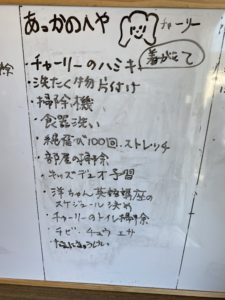 あっかのへや
チャーリー
着がえて
・チャーリーのハミキ
・洗たく物片付け
・掃除機
・食器洗い
・縄飛び100回・ストレッチ
・部屋の掃除
・キッズデュオ予習
・洋ちゃん英語講座の
スケジュール決め
・チャーリーのトイレ掃除
・チビ・チュウ エサ
掃除